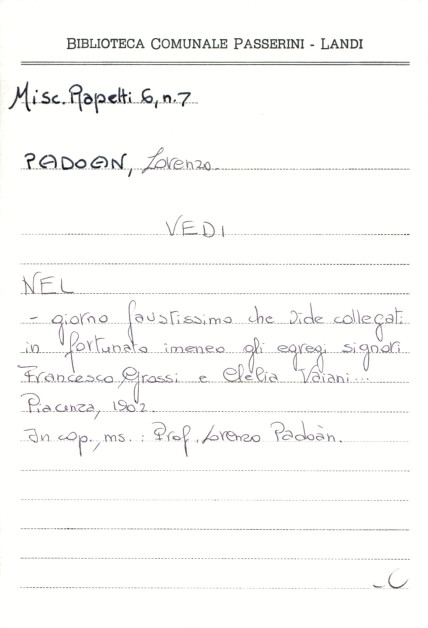 BIBLIOTECA COMUNALE PASSERINI - LANDI
Misc. Rapetti 6, n. 7
PADOAN, Lorenzo.
VEDI
NEL
- giorno faustissimo che vide collegati
in fortunato imeneo gli egregi signori
Francesco Grossi e Clelia Vaiani...
Piacenza, 1902.
In cop., ms.: Prof. Lorenzo Padoàn.